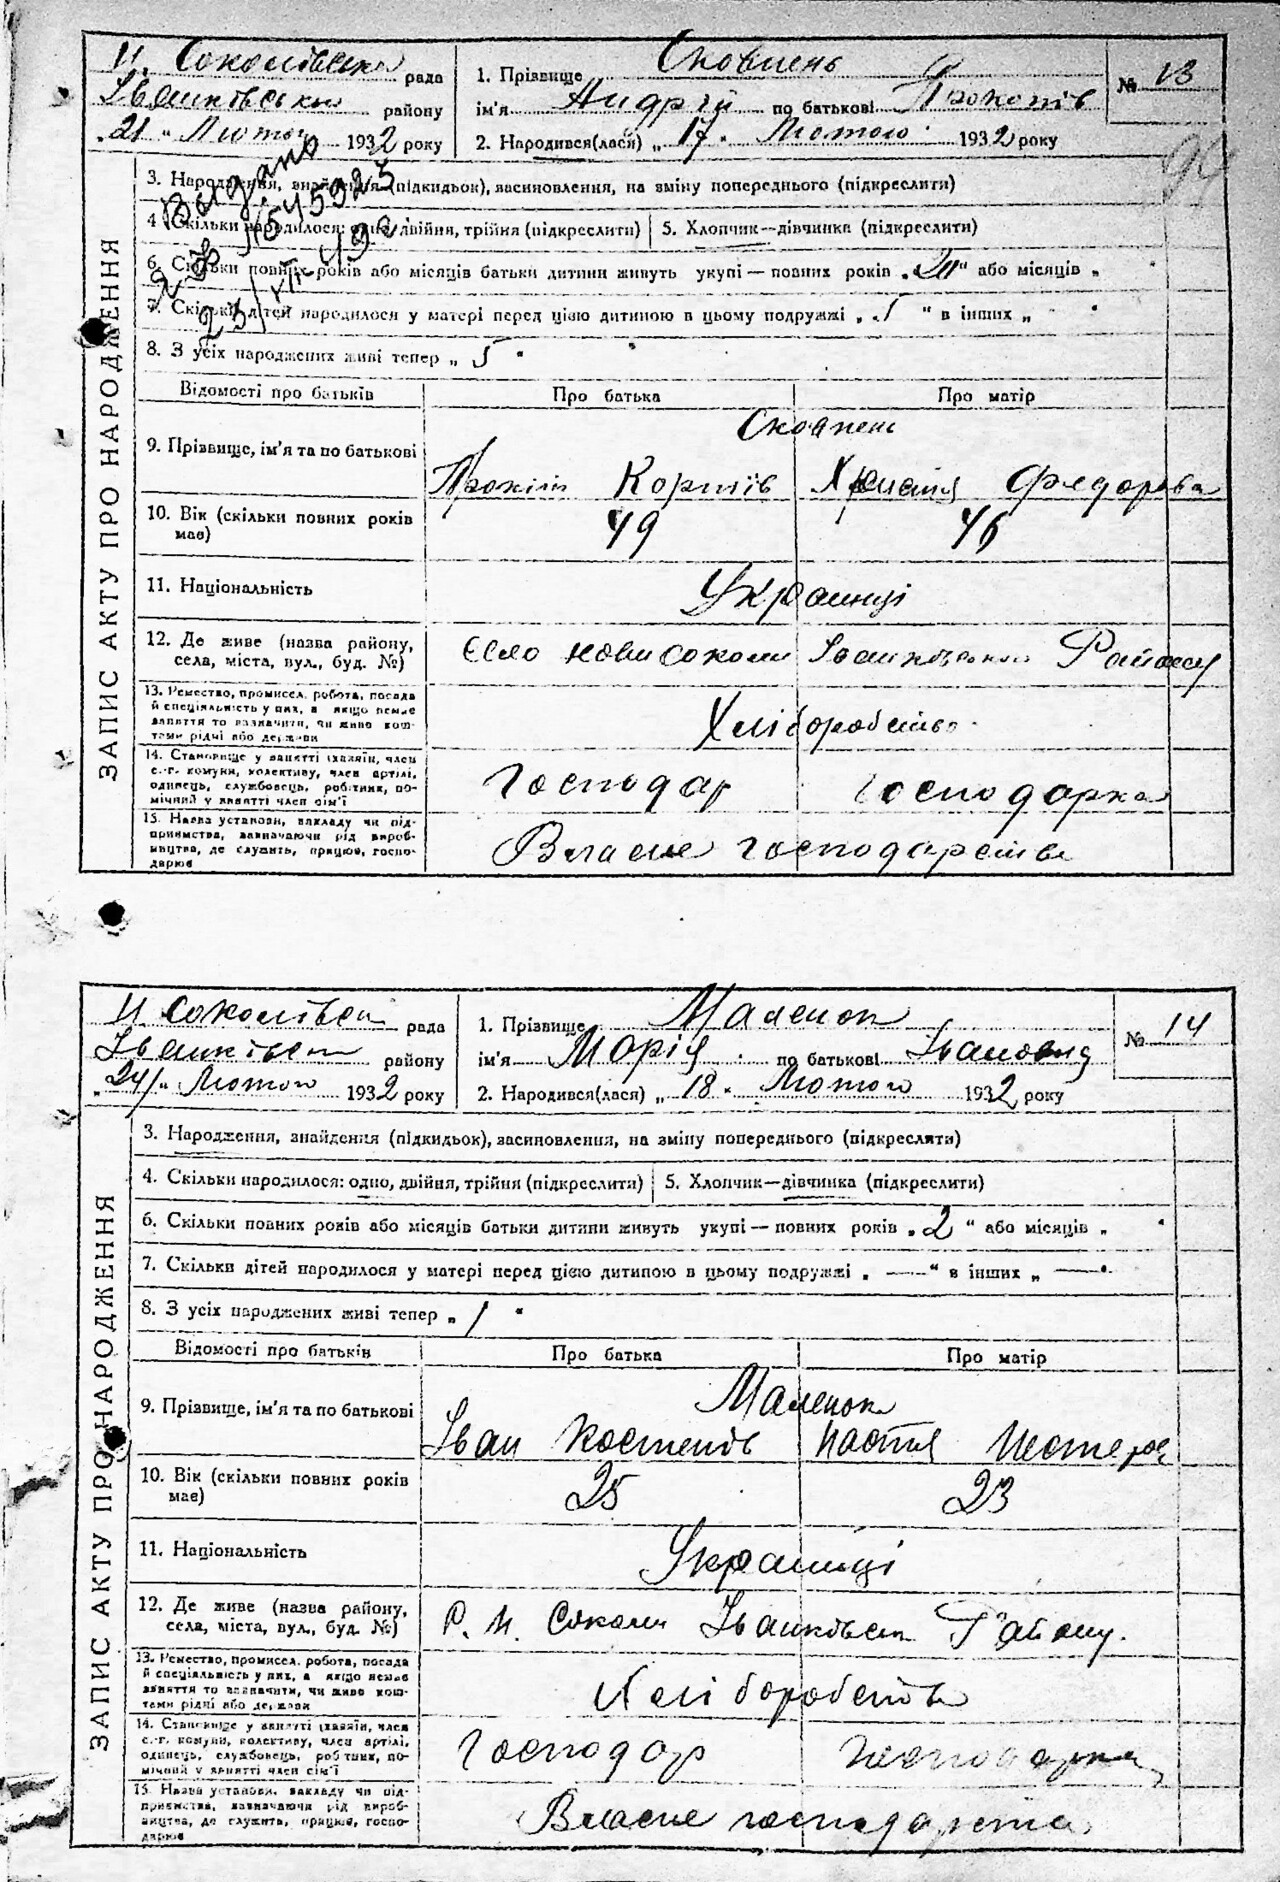 Н. Соколівська рада
Іванківського району
„21" Лютого 1932 року
1. Прізвище Сковпень
ім'я Андрій по батькові Прокопів
2. Народився(лася) „17" Лютого 1932 року
№ 13
99
Видано
545923
3. Народження, знайдення (підкидьок), засиновлення, на зміну попереднього (підкреслити)
4 Скільки народилося: одно, двійня, трійня (підкреслити) 5. Хлопчик—дівчинка (підкреслити)
6. Скільки повних років або місяців батьки дитини живуть укупі — повних років „ " або місяців „ "
7. Скільки дітей народилося у матері перед цією дитиною в цьому подружжі „ " в інших „ "
8. З усіх народжених живі тепер „ 5 "
Відомості про батьків Про батька Про матір
Сковпень
9. Прізвище, ім'я та по батькові
Прокіп Корніїв Христя Федорова
10. Вік (скільки повних років має) 49 46
11. Національність Украінці
12. Де живе (назва району, села, міста, вул., буд. №) Село Нови Соколи Іванковского Району
13. Ремество, промисел, робота, посада й спеціяльність у них, а якщо немає заняття то зазначити, чи живе коштами рідні або держави Хліборобство
14. Становище у занятті (хазяїн, член с.-г. комуни, колективу, член артілі, одинець, службовець, робітник, помічний у занятті член сім'ї Господар Господарка
15. Назва установи, закладу чи підприємства, зазначаючи рід виробництва, де служить, працює, господарює Власне господарство
ЗАПИС АКТУ ПРО НАРОДЖЕННЯ
Н Соколівська рада
Іванківськ району
„24" Лютого 1932 року
1. Прізвище Маленок
ім'я Марія по батькові Івановна
2. Народився(лася) „18" Лютого 1932 року
№ 14
3. Народження, знайдення (підкидьок), засиновлення, на зміну попереднього (підкреслити)
4. Скільки народилося: одно, двійня, трійня (підкреслити) 5. Хлопчик—дівчинка (підкреслити)
6. Скільки повних років або місяців батьки дитини живуть укупі — повних років „ 2 " або місяців „ "
7. Скільки дітей народилося у матері перед цією дитиною в цьому подружжі „ — " в інших „ — "
8. З усіх народжених живі тепер „ 1 "
Відомості про батьків Про батька Про матір
Маленок
9. Прізвище, ім'я та по батькові
Іван Костенів Настя Нестеров
10. Вік (скільки повних років має) 25 23
11. Національність Украінці
12. Де живе (назва району, села, міста, вул., буд. №) С. Н. Соколи Іванківськ Району.
13. Ремество, промисел, робота, посада й спеціяльність у них, а якщо немає заняття то зазначити, чи живе коштами рідні або держави Хліборобство
14. Становище у занятті (хазяїн, член с.-г. комуни, колективу, член артілі, одинець, службовець, робітник, помічний у занятті член сім'ї Господар Господарка
15. Назва установи, закладу чи підприємства, зазначаючи рід виробництва, де служить, працює, господарює Власне господарство
ЗАПИС АКТУ ПРО НАРОДЖЕННЯ